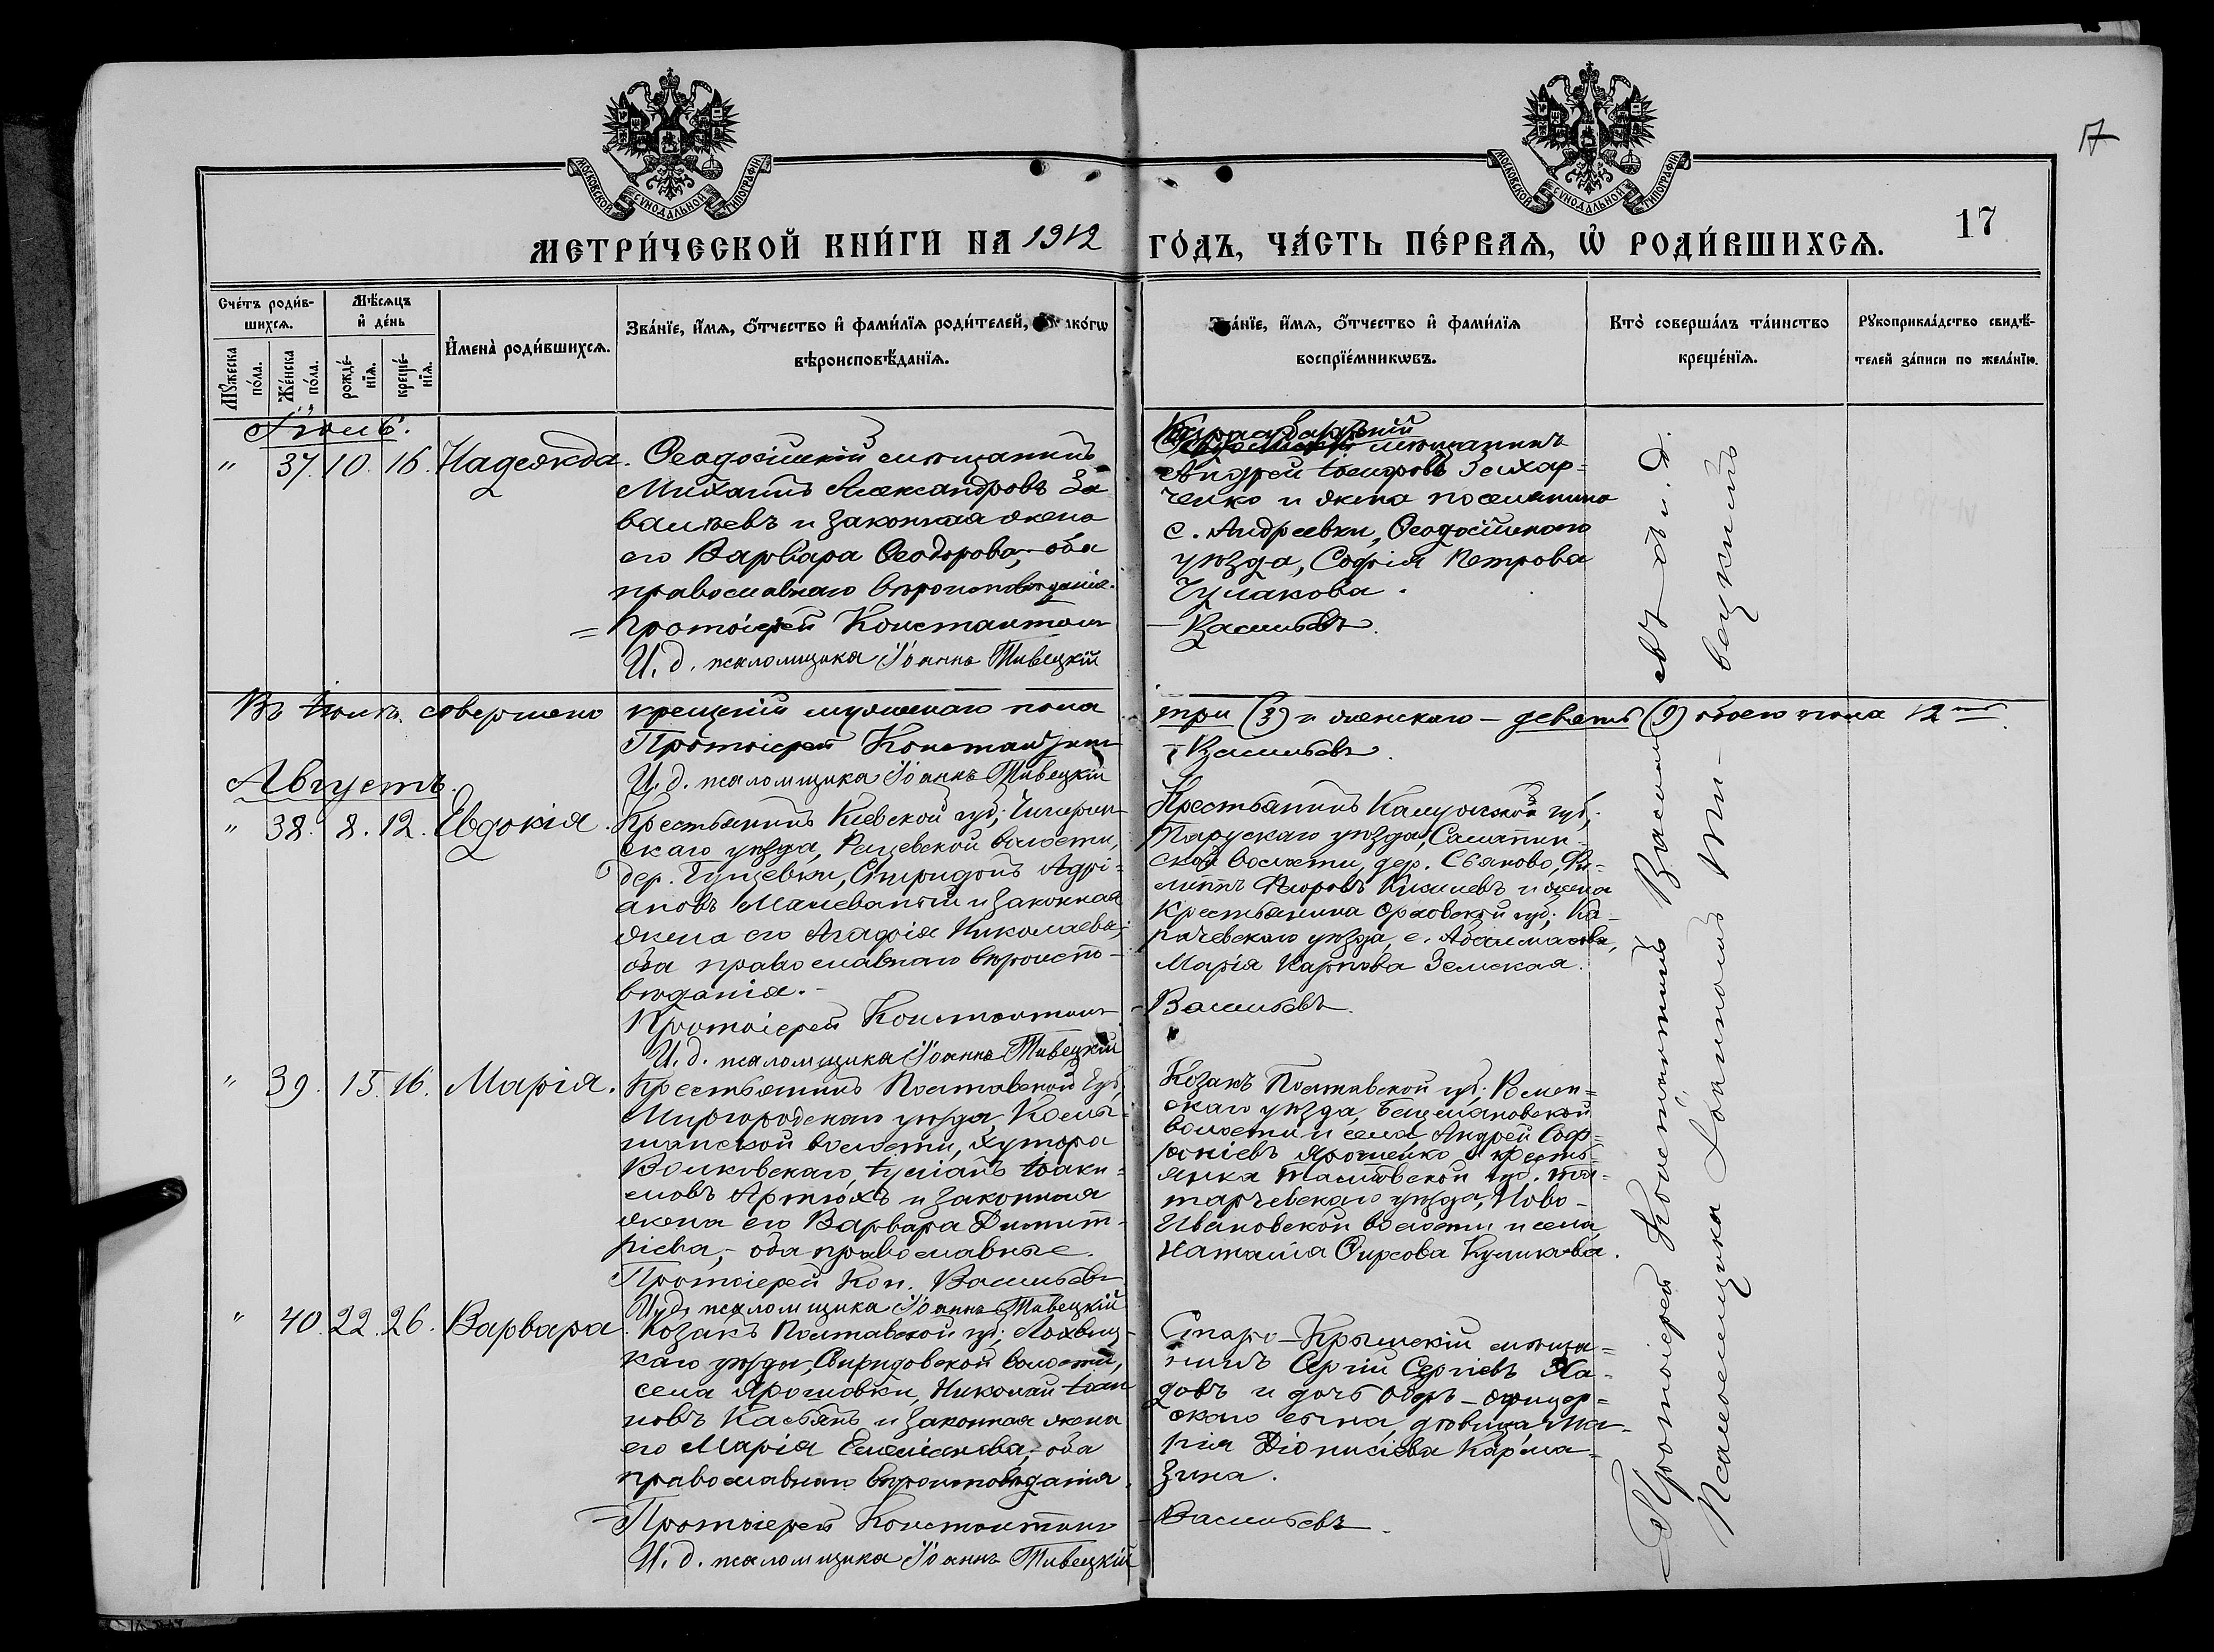 17
МОСКОВСКОЙ СѴНОДАЛЬНОЙ ТИПОГРАФІИ
МОСКОВСКОЙ СѴНОДАЛЬНОЙ ТИПОГРАФІИ
МЕТРИ́ЧЕСКОЙ КНИ́ГИ НА 1912 ГО́ДЪ, ЧА́СТЬ ПЕ́РВАѦ, Ѽ РОДИ́ВШИХСѦ.
17
Сче́тъ роди́в-
шихсѧ.
Мꙋ́жеска по́ла.
Же́нска по́ла.
Мѣ́сѧцъ
и҆ де́нь
рожде́-
нїѧ.
креще́-
нїѧ.
И҆мена̀ роди́вшихсѧ.
Зва́нїе, и҆́мѧ, ѻ҆́тчество и҆ фами́лїѧ роди́телей, како́гѡ
вѣроисповѣ́данїѧ.
Зва́нїе, и҆́мѧ, ѻ҆́тчество и҆ фами́лїѧ
воспрїе́мникѡвъ.
Кто̀ соверша́лъ та́инство
креще́нїѧ.
Рꙋкоприкла́дство свидѣ́-
телей за́писи по жела́нїю.
Іюль.
" 37. 10. 16. Надежда.
Ѳеодосійскій мѣщанинъ
Михаилъ Александровъ За
вальевъ и законная жена
его Варвара Ѳеодорова, оба
православнаго вѣроисповѣданія.
= Протоіерей Константинъ
И. д. псаломщика Іоаннъ Тивецкій
мѣщанинъ
Андрей
ченко и жена поселянина
с. Андреевки, Ѳеодосійскаго
уѣзда, Софія Петрова
Чулакова.
Васильевъ.
Въ Іюлѣ совершено крещеній мужескаго пола три (3) и женскаго – девять (9) обоего пола 12
Протоіерей Константинъ Васильевъ.
И. д. псаломщика Іоаннъ Тивецкій
Августъ.
" 38. 8. 12. Евдокія.
Крестьянинъ Кіевской губ., Чигирин-
скаго уѣзда, волости,
дер. Спиридонъ Адрі-
ановъ Малеваный и законная
жена его Агафія Николаева,
оба православнаго вѣроиспо-
вѣданія. –
Протоіерей Константинъ
И. д. псаломщика Іоаннъ Тивецкій
Крестьянинъ Калужской губ.,
Тарускаго уѣзда,
ской волости, дер. Фи-
липпъ и жена
крестьянина Орловской губ. Ка-
рачевскаго уѣзда, с.
Марія Карпова Земская.
Васильевъ.
" 39. 15. 16. Марія.
Крестьянинъ Полтавской губ.,
Миргородскаго уѣзда,
волости, хутора
Волковскаго, Іуліанъ Іоаки-
мовъ Артюхъ и законная
жена его Варвара Димит-
ріева, – оба православные.
Протоіерей Кон. Васильевъ
И. д. псаломщика Іоаннъ Тивецкій
Козакъ Полтавской губ. Ромен-
скаго уѣзда,
волости и села, Андрей Соф-
роніевъ Ярошенко и кресть-
янка губ.
уѣзда, Ново-
Ивановской волости и села
Наталія Ѳирсова Куликова.
" 40. 22. 26. Варвара.
Козакъ Полтавской губ., Лохвиц-
каго уѣзда, Свиридовской волости,
села Ярошовки, Николай Іоан
новъ Касьянъ и законная жена
его Марія Емеліанова, – оба
православнаго вѣроисповѣданія.
– Протоіерей Константинъ
И. д. псаломщика Іоаннъ Тивецкій
Старо-Крымскій мѣща-
нинъ Сергій Сергіевъ
и дочь оберъ-офицер-
скаго сына, дѣвица, Ма-
рія Діонисіева Карма-
зина.
Васильевъ.
Протоіерей Константинъ Васильевъ и. д.
Псаломщика Іоанномъ Ти-вецкимъ